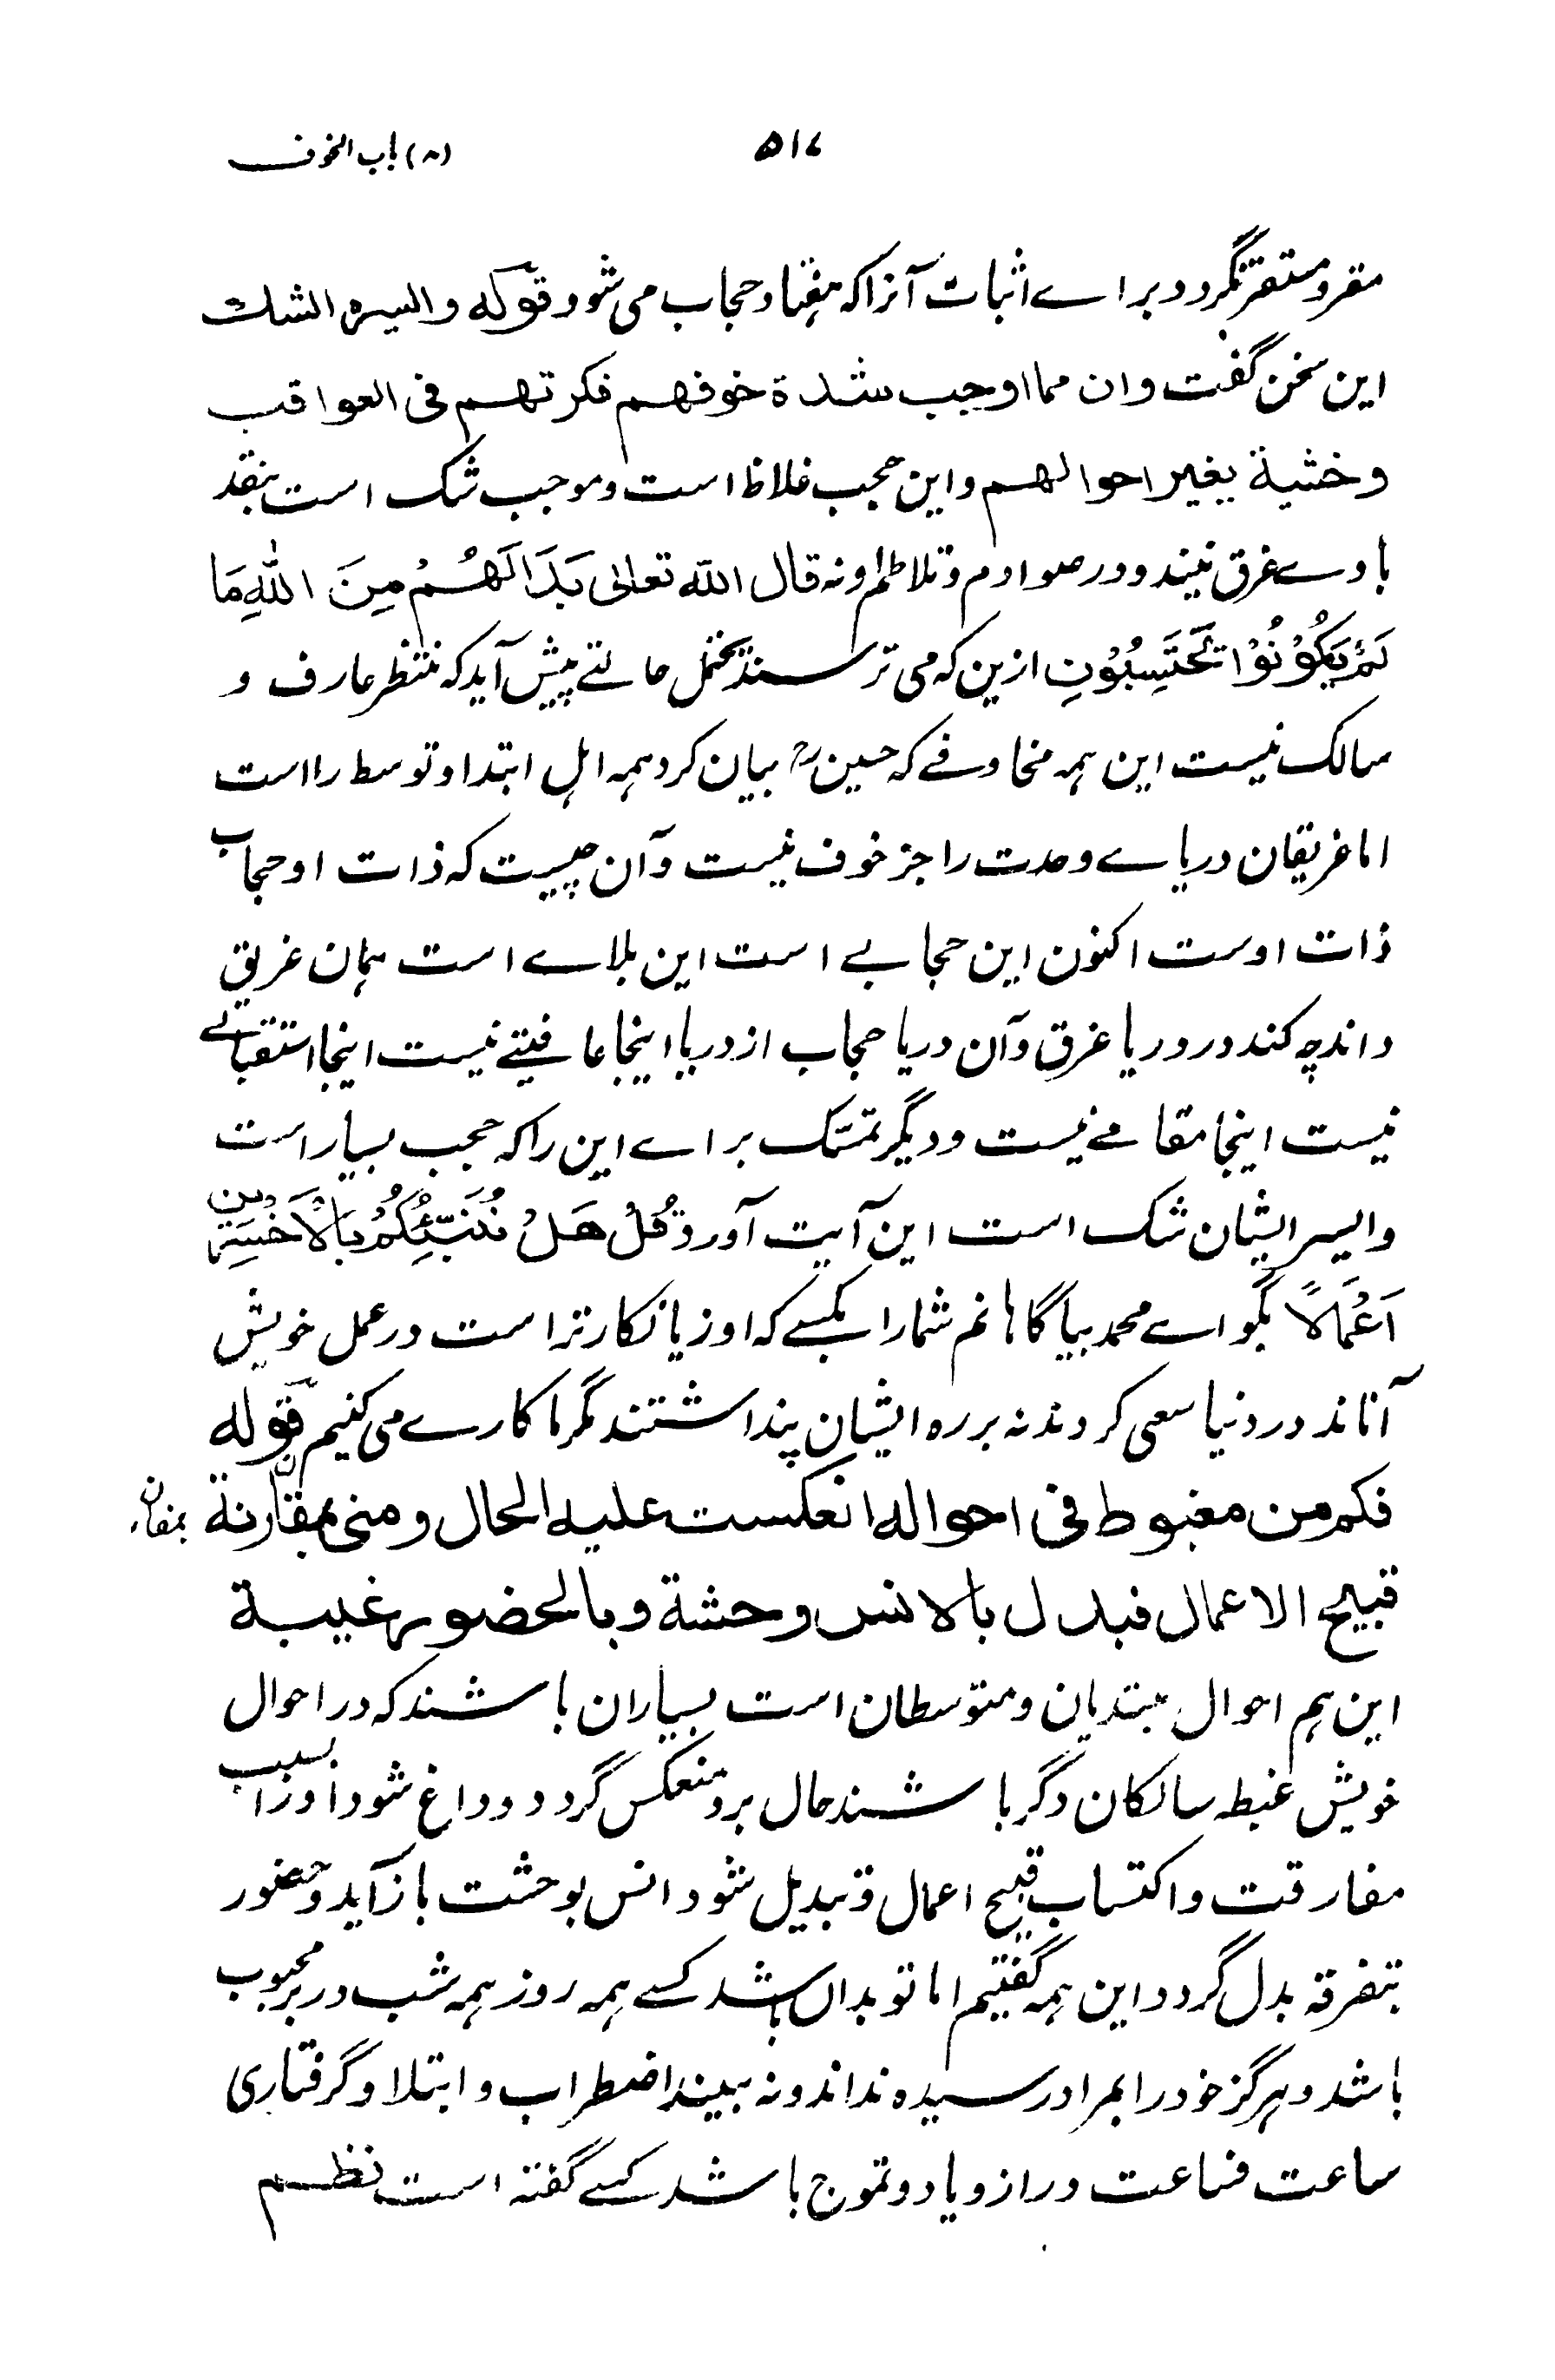 ۵۱۷ (۸) باب الخوف
مقر و مستقر نگردد براے اثبات آنرا که هفتاد حجاب می شود قوله والسیره الشك
این سخن گفت وان مما اوجب شدة خوفهم فکرتهم فی العواقب
و خشیة یغیر احوالهم و این حجب غلاظ است و موجب شک است بنقد
باوے غرق نیند و در صوادم و تلاطم او نه قال الله تعالی بَدَا لَهُمْ مِنَ اللّٰهِ مَا
لَمْ یَکُوْنُوْا یَحْتَسِبُوْنَ ازین که می ترسند محتمل حالتے پیش آید که منتظر عارف و
سالک نیست این همه مخاوفے که حسینؒ بیان کرد همه اهل ابتدا و توسط را است
اما غریقان دریاے وحدت را جز خوف نیست و آن چیست که ذات او حجاب
ذات اوست اکنون این حجابے است این بلاے است همان غریق
داند چه کند در دریا غرق و آن دریا حجاب از دریا اینجا عافیتے نیست اینجا استقبالے
نیست اینجا مقامے نیست و دیگر تمسّک براے این را که حجب بسیار است
و الیسر ایشان شک است این آیت آورد قُلْ هَلْ نُنَبِّئُكُمْ بِالْاَخْسَرِیْنَ
اَعْمَالًا بگو اے محمد بیاگاهانم شما را بکسے که او زیانکارتر است در عمل خویش
آنانند در دنیا سعی کردند نه بر ره ایشان پنداشتند مگر ما کارے می کنیم قوله
فکم من مغبوط فی احواله انعکست علیه الحال و منی بمقارنة بمفار
قبیح الاعمال فبدل بالانس وحشة و بالحضور غیبة
این هم احوال مبتدیان و متوسطان است بسیاران باشند که در احوال
خویش غبطه سالکان دگر باشند حال برو منعکس گردد و داغ شود او را بسبب
مفارقت و اکتساب قبیح اعمال و تبدیل شود انس بوحشت باز آید و حضور
بتفرقه بدل گردد این همه گفتیم اما تو بدان باشد کسے همه روز همه شب در بر محبوب
باشد و هرگز خود را بمراد رسیده نداند و نه بیند اضطراب و ابتلا و گرفتاری
ساعت فساعت در ازدیاد و تموج باشد کسے گفته است نظم